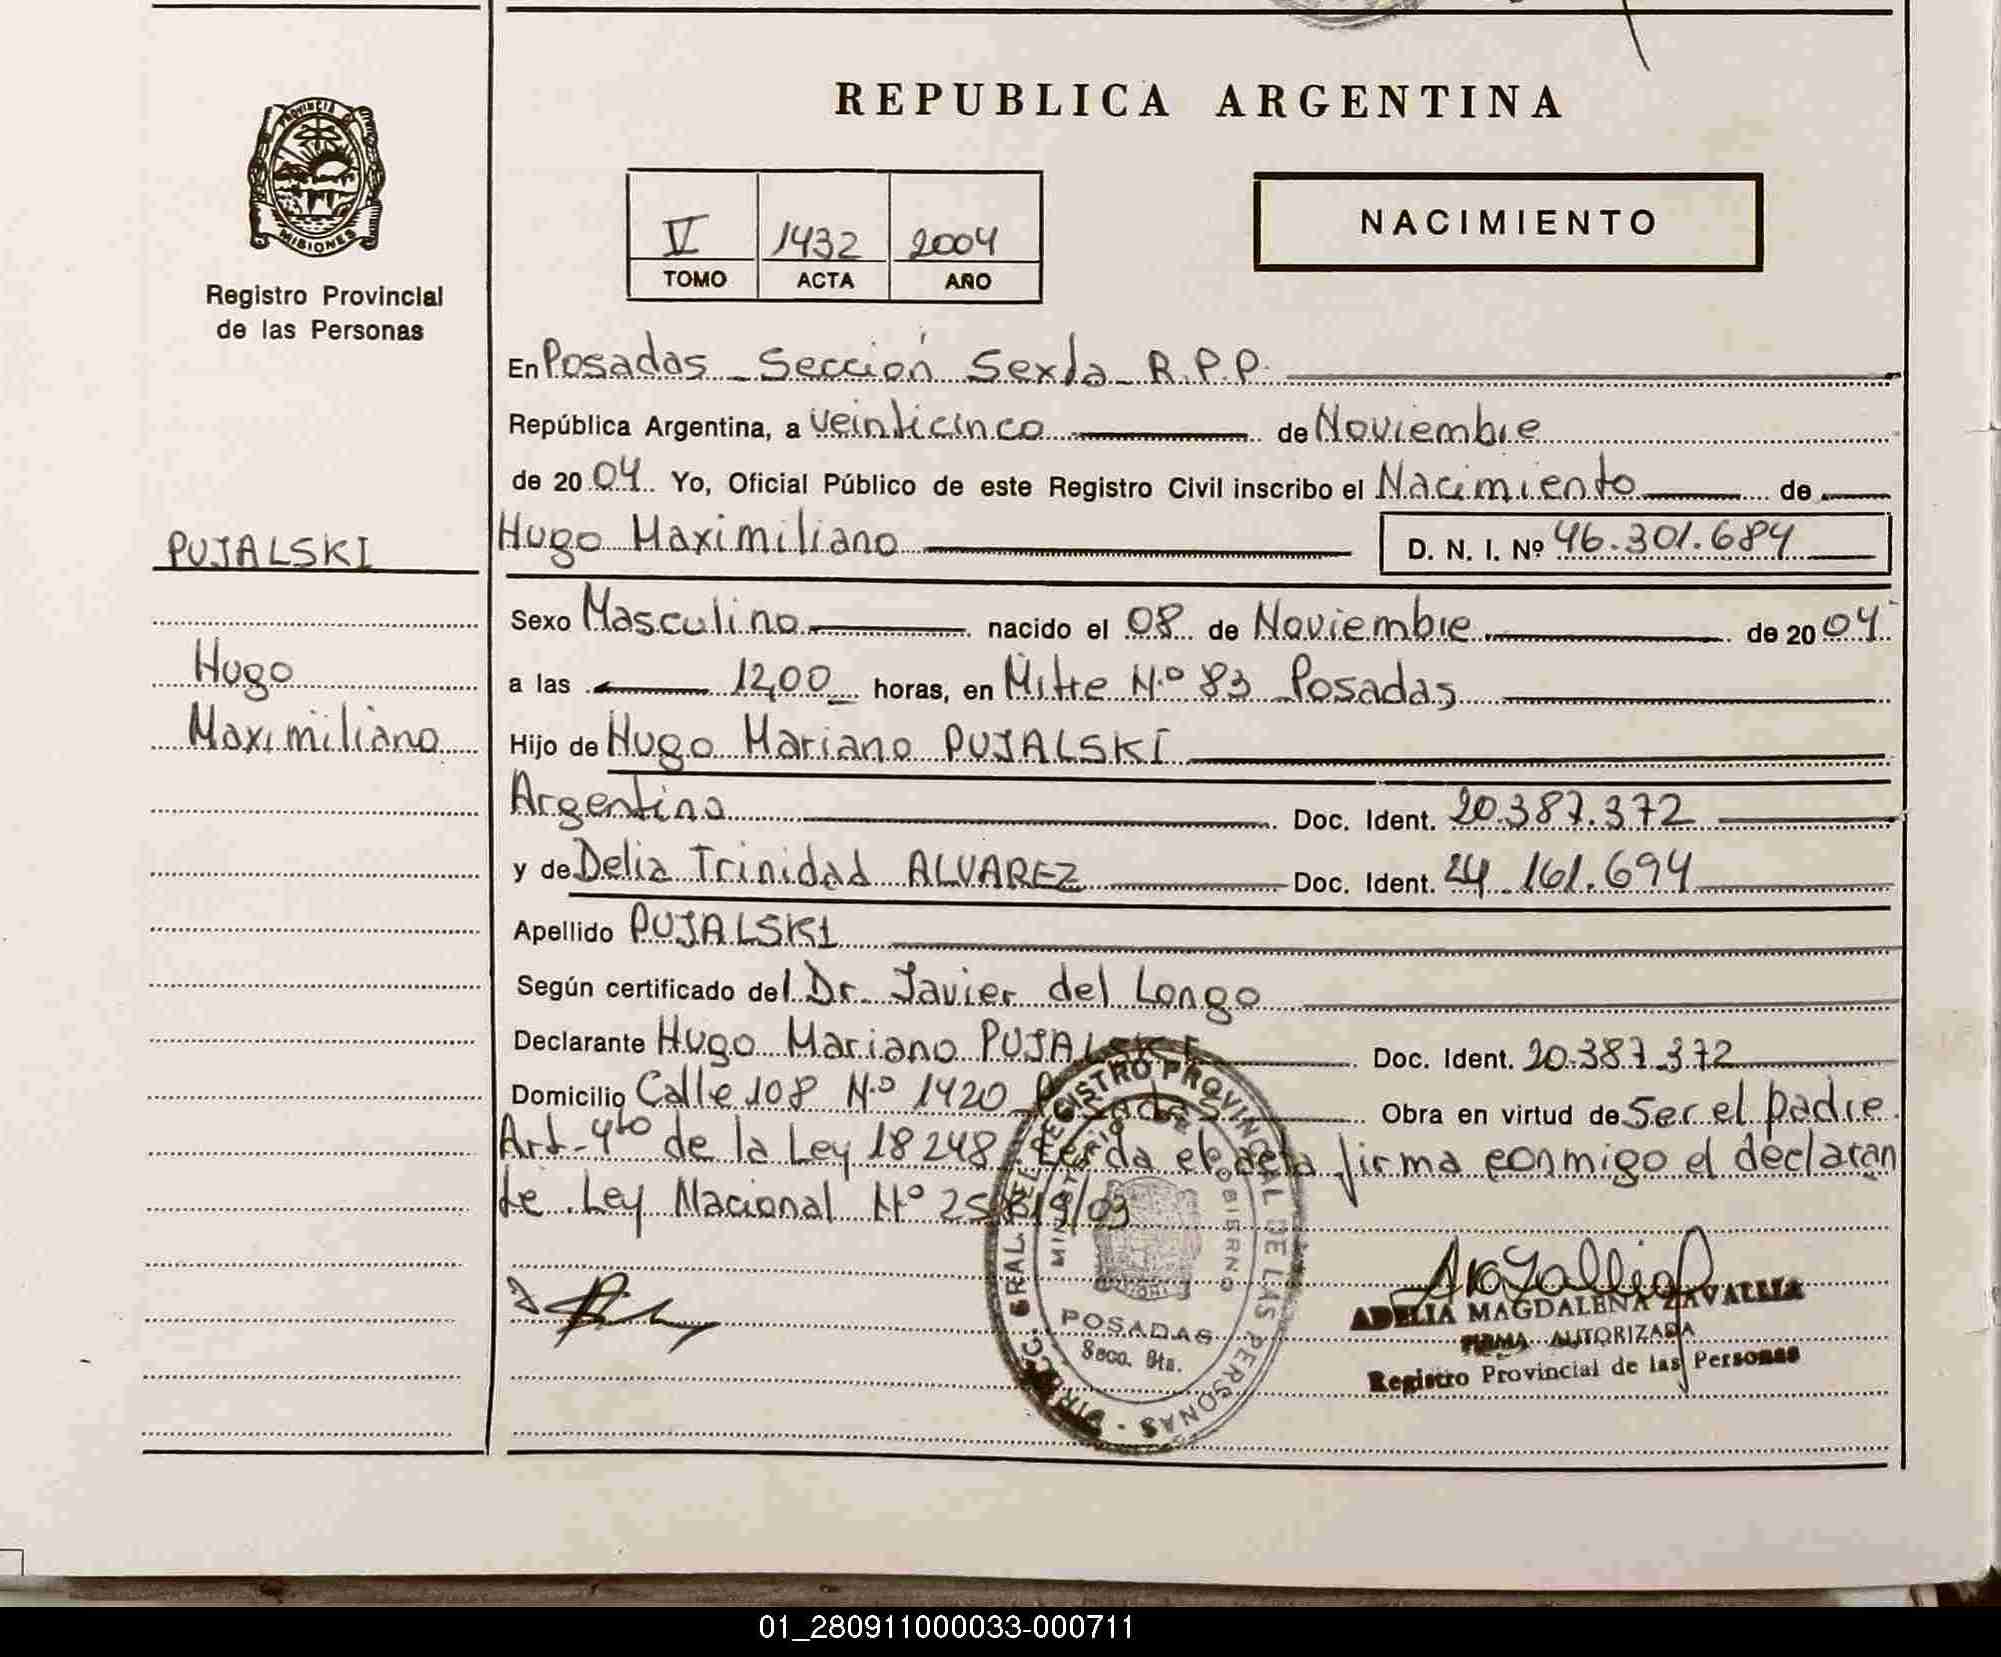 REPUBLICA ARGENTINA
PROVINCIA DE
MISIONES
Registro Provincial
de las Personas
V 1432 2004
TOMO ACTA AÑO
NACIMIENTO
En Posadas - Sección Sexta - R.P.P.
República Argentina, a veinticinco de Noviembre
de 2004 Yo, Oficial Público de este Registro Civil inscribo el Nacimiento de
PUJALSKI
Hugo Maximiliano D. N. I. Nº 46.301.684
Sexo Masculino nacido el 08 de Noviembre de 2004
Hugo
Maximiliano
a las 12,00 horas, en Mitre N.º 83 Posadas
Hijo de Hugo Mariano PUJALSKI
Argentino Doc. Ident. 20.387.372
y de Delia Trinidad ALVAREZ Doc. Ident. 24.161.694
Apellido PUJALSKI
Según certificado del Dr. Javier del Longo
Declarante Hugo Mariano PUJALSKI Doc. Ident. 20.387.372
Domicilio Calle 108 N.º 1420 Posadas Obra en virtud de Ser el padre
Art- 4to de la Ley 18248 Leída el acta firma conmigo el declaran
te. Ley Nacional Nº 25819/03
DIRECC. GRAL. DEL REGISTRO PROVINCIAL DE LAS PERSONAS
MINISTERIO DE GOBIERNO
POSADAS
Secc. 6ta.
ADELIA MAGDALENA ZAVALLIA
FIRMA AUTORIZADA
Registro Provincial de las Personas
01_280911000033-000711